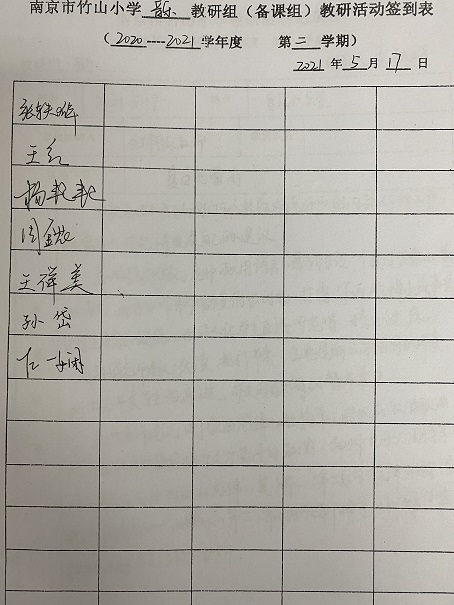 南京市竹山小学 音乐 教研组（备课组）教研活动签到表
（2020----2021学年度 第二学期）
2021年5月17日
王红
杨艳艳
王祥美
孙岱